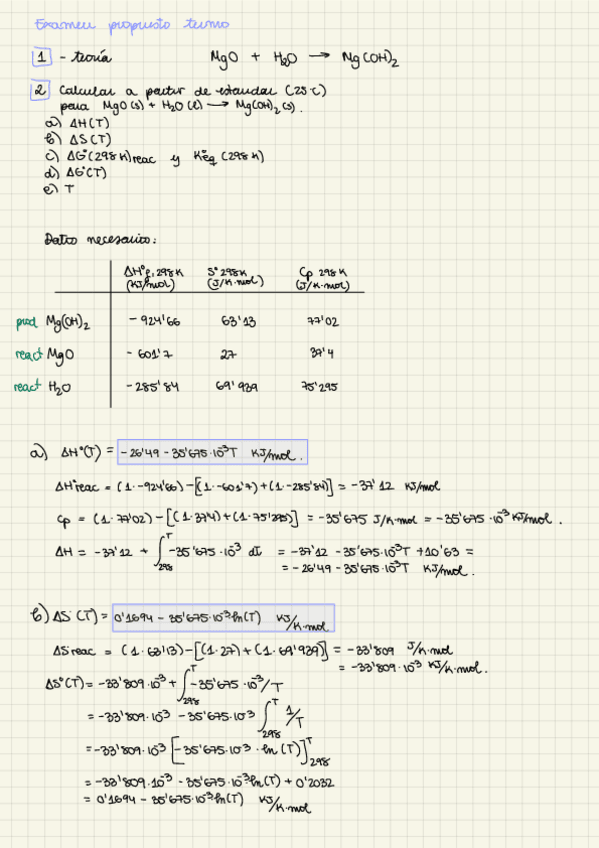 Examen propuesto termo
1 - teoría MgO + H₂O ⟶ Mg(OH)₂
2 Calcular a partir de estandar (25°C)
para MgO(s) + H₂O(l) ⟶ Mg(OH)₂(s).
a) ΔH(T)
b) ΔS(T)
c) ΔG°(298K)reac y K°eq (298K)
d) ΔG°(T)
e) T
Datos necesarios:
ΔH°f, 298K (KJ/mol) S° 298K (J/K·mol) Cp 298K (J/K·mol)
prod Mg(OH)₂ -924'66 63'13 77'02
react MgO -601'7 27 37'4
react H₂O -285'84 69'939 75'295
a) ΔH°(T) = -26'49 - 35'675·10⁻³T KJ/mol.
ΔH°reac = (1·-924'66) - [(1·-601'7) + (1·-285'84)] = -37'12 KJ/mol
Cp = (1·77'02) - [(1·37'4) + (1·75'295)] = -35'675 J/K·mol = -35'675·10⁻³ KJ/mol.
ΔH = -37'12 + ∫₂₉₈ᵀ -35'675·10⁻³ dT = -37'12 - 35'675·10⁻³T + 10'63 =
= -26'49 - 35'675·10⁻³T KJ/mol.
b) ΔS°(T) = 0'1694 - 35'675·10⁻³ln(T) KJ/K·mol
ΔS reac = (1·63'13) - [(1·27) + (1·69'939)] = -33'809 J/K·mol
= -33'809·10⁻³ KJ/K·mol.
ΔS°(T) = -33'809·10⁻³ + ∫₂₉₈ᵀ -35'675·10⁻³/T
= -33'809·10⁻³ - 35'675·10⁻³ ∫₂₉₈ᵀ 1/T
= -33'809·10⁻³ [-35'675·10⁻³·ln(T)]₂₉₈ᵀ
= -33'809·10⁻³ - 35'675·10⁻³ln(T) + 0'2032
= 0'1694 - 35'675·10⁻³ln(T) KJ/K·mol